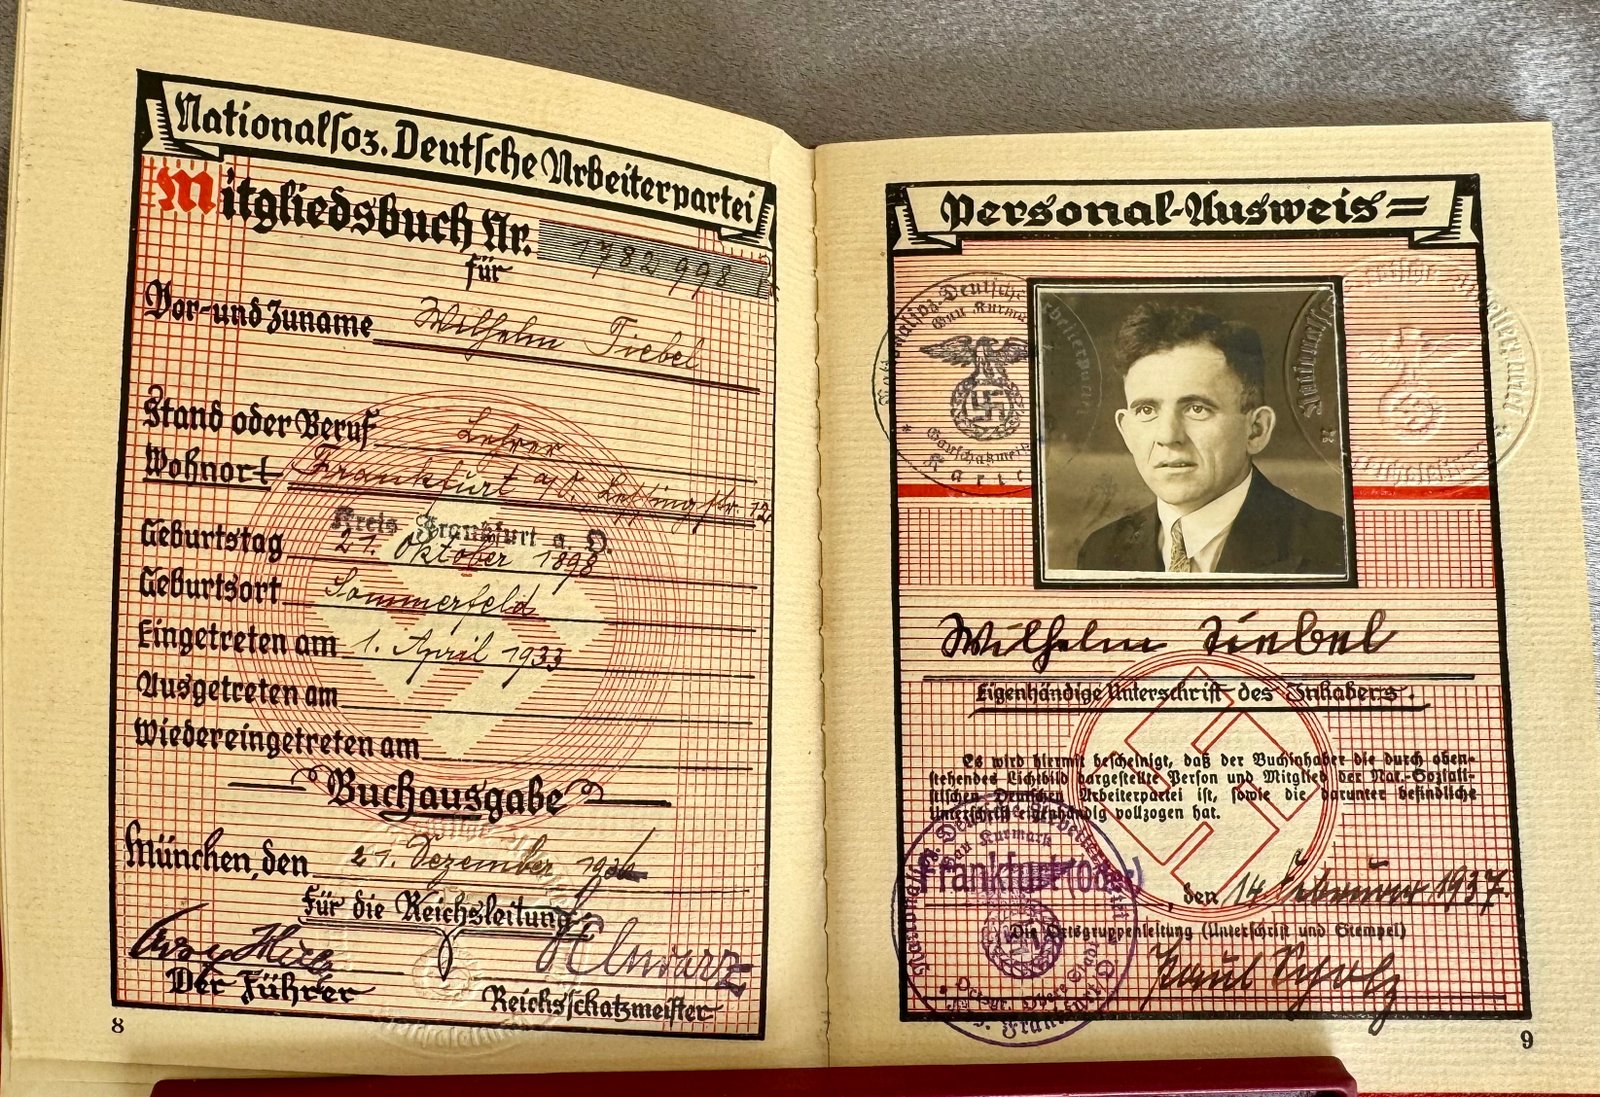 Nationalsoz. Deutsche Arbeiterpartei
Mitgliedsbuch Nr. 1782998
für
Vor- und Zuname Wilhelm Tiebel
Stand oder Beruf Lehrer
Wohnort Frankfurt a/O. Lessingstr. 12
Kreis Frankfurt a. O.
Geburtstag 21. Oktober 1898
Geburtsort Sommerfeld
Eingetreten am 1. April 1933
Ausgetreten am
Wiedereingetreten am
Buchausgabe
München, den 21. Dezember 1936
Für die Reichsleitung:
Schwarz
Der Führer
Reichsschatzmeister
8
Personal-Ausweis
Nationalsoz. Deutsche Arbeiterpartei
Gau Kurmark
Wilhelm Tiebel
Eigenhändige Unterschrift des Inhabers.
Es wird hiermit bescheinigt, daß der Buchinhaber die durch oben-
stehendes Lichtbild dargestellte Person und Mitglied der Nat.-Soziali-
stischen Deutschen Arbeiterpartei ist, sowie die darunter befindliche
Unterschrift eigenhändig vollzogen hat.
Gau Kurmark
Frankfurt (Oder), den 14. Februar 1937.
Die Ortsgruppenleitung (Unterschrift und Stempel)
Paul Scholz
9